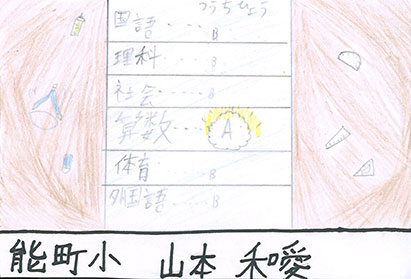 つうちひょう
国語・・・・B
理科・・・・B
社会・・・・・B
算数・・・A
体育・・・・・B
外国語・・・・B
能町小 山本 禾噯